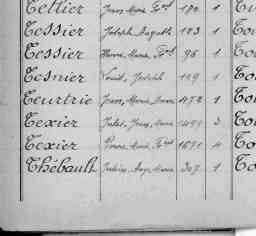 Tellier Jean, Marie, Fçs 172 1 Tu
Tessier Joseph, Auguste 123 1 Tou
Tessier Pierre, Marie, Fçs 96 1 Tou
Tesnier Louis, Joseph 119 1 To
Teurtrie Jean, Marie, 1472 1 To
Texier Jules, Jean, Marie 1499 3 To
Texier Pierre, Marie, Fçs 1671 4 To
Thébault Julien, Ange, Marie 307 1 To